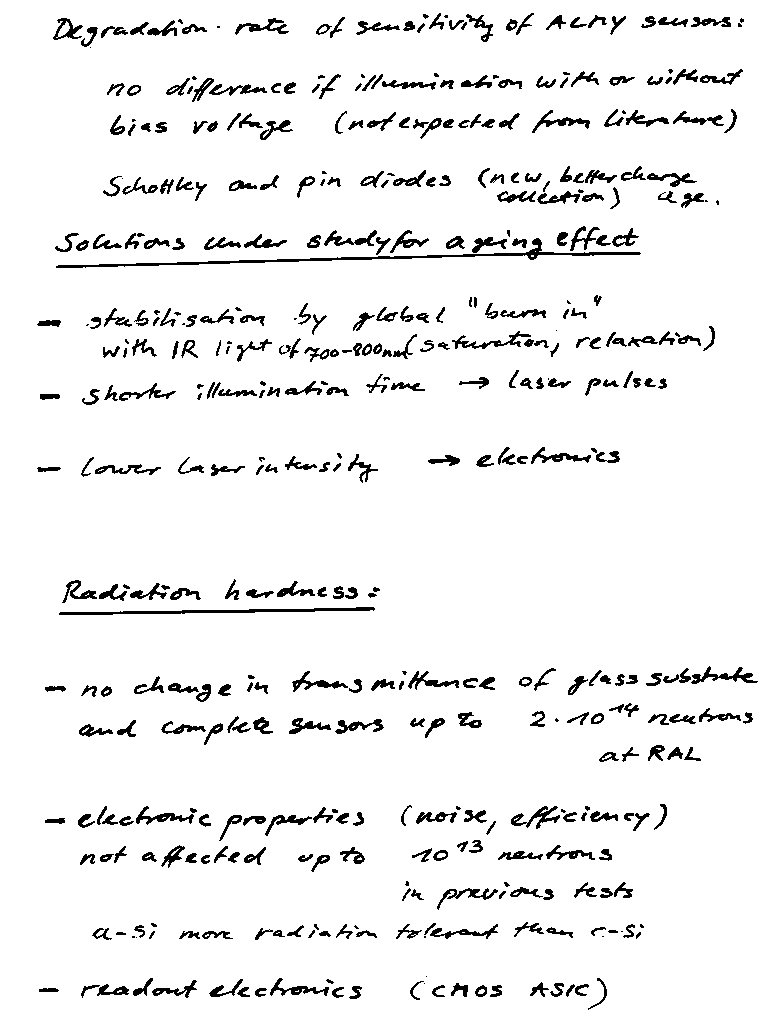 Degradation rate of sensitivity of ALMY sensors:
no difference if illumination with or without
bias voltage (not expected from literature)
Schottky and pin diodes (new, better charge
collection) age.
Solutions under study for ageing effect
- stabilisation by global "burn in"
with IR light of 700-800nm (saturation, relaxation)
- shorter illumination time → laser pulses
- lower laser intensity → electronics
Radiation hardness:
- no change in transmittance of glass substrate
and complete sensors up to 2·10¹⁴ neutrons
at RAL
- electronic properties (noise, efficiency)
not affected up to 10¹³ neutrons
in previous tests
a-Si more radiation tolerant than c-Si
- readout electronics (CMOS ASIC)